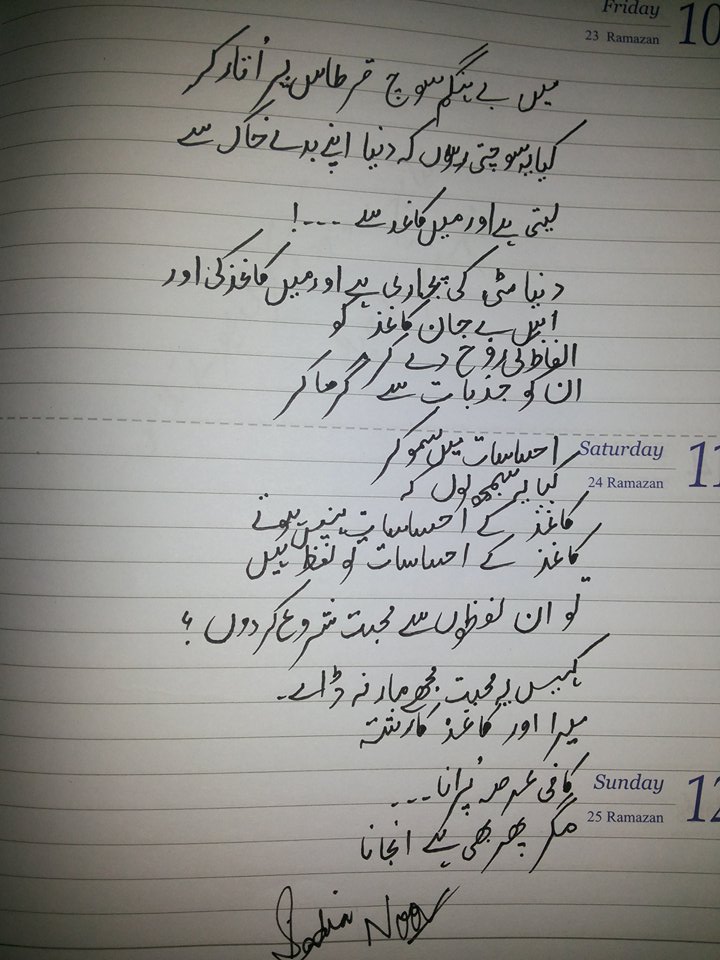 Friday 10
23 Ramazan
میں بے ہنگم سوچ قرطاس پر اُتار کر
کیا یہ سوچتی رہوں کہ دنیا اپنے بدلے خاک سے
لیتی ہے اور میں کاغذ سے ---!
دنیا مٹی کی پجاری ہے اور میں کاغذ کی اور
اس بے جان کاغذ کو
الفاظ کی روح دے کر
ان کو جذبات سے گرما کر
احساسات میں سمو کر
Saturday 11
24 Ramazan
کیا یہ سمجھ لوں کہ
کاغذ کے احساسات نہیں ہوتے
کاغذ کے احساسات تو لفظ ہیں
تو ان لفظوں سے محبت شروع کر دوں ؟
کہیں یہ محبت مجھے مار نہ ڈالے۔
میرا اور کاغذ کا رشتہ
کافی عرصہ پُرانا---
Sunday 12
25 Ramazan
مگر پھر بھی ہے انجانا
Sadia Noor